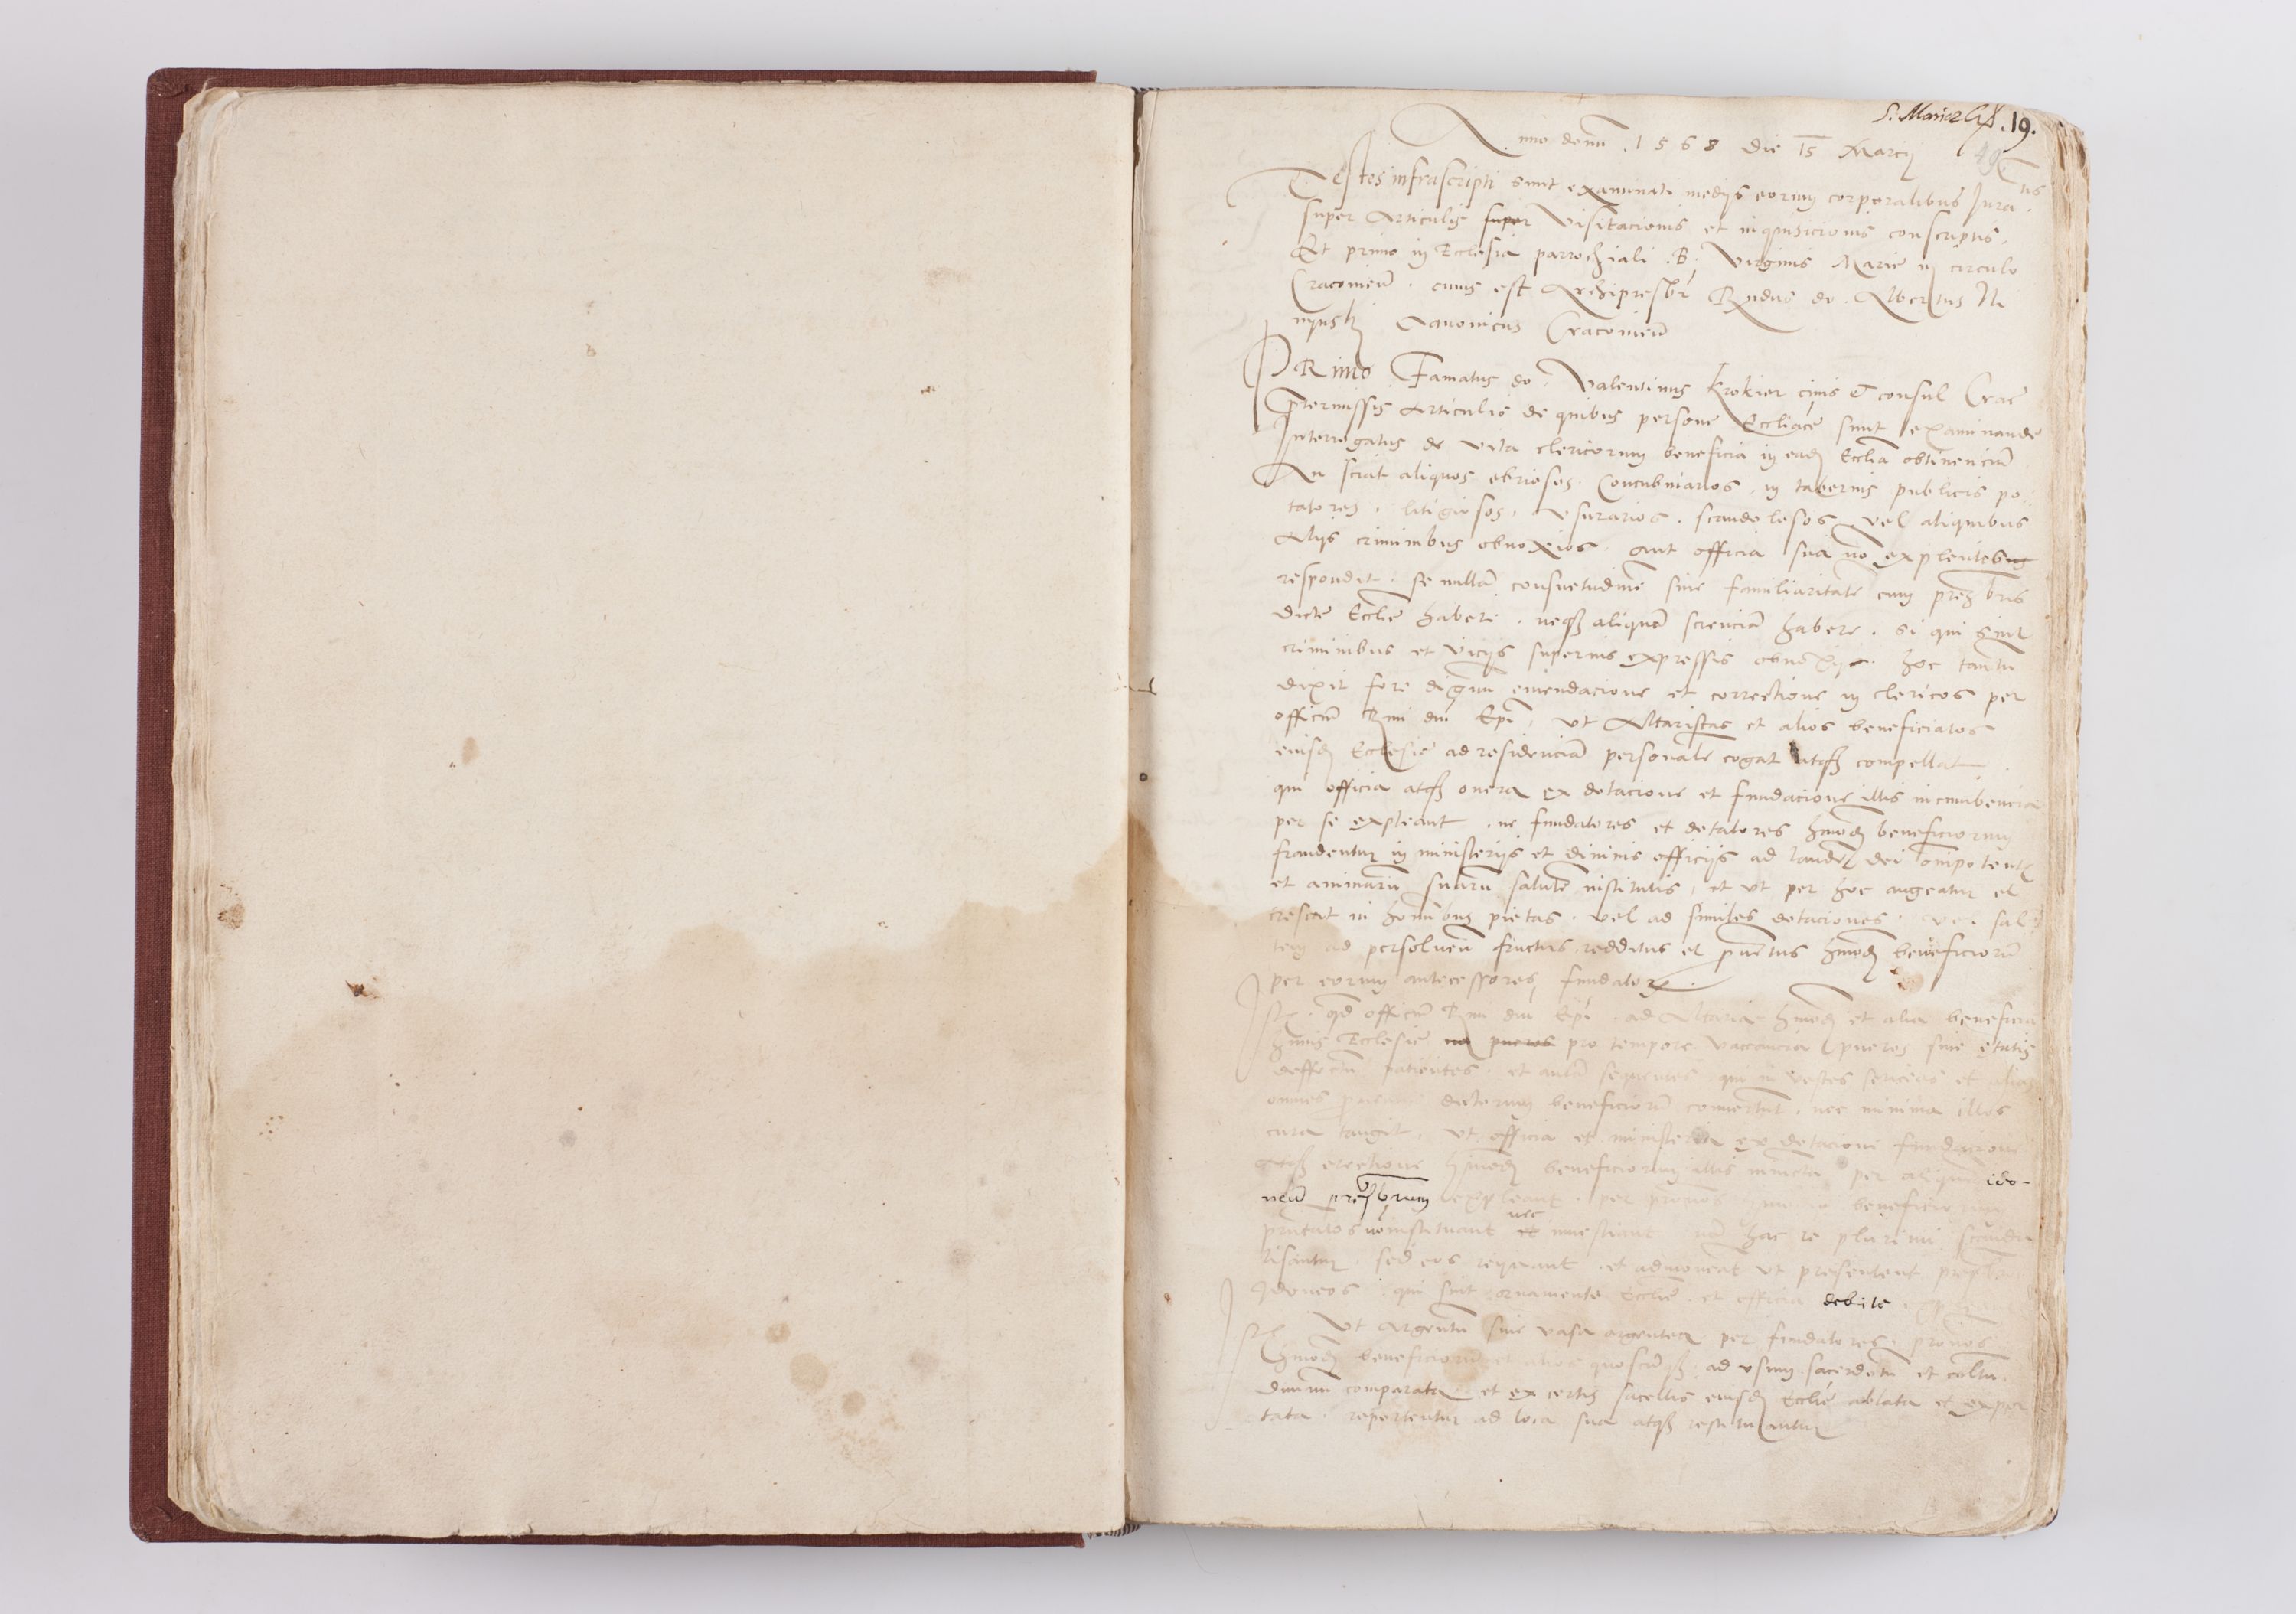 S. Mariae 19.
Anno domi 1568 die 15 Marcij
Testes infrascripti sunt examinati medijs eorum corporalibus Iura.tis
super Articulis super visitacionis et inquisicionis conscriptis.
Et primo in Ecclesia parrochiali .B. Virginis Marie in circulo
Cracovien. cuius est Archipresbr Rndus do. Albertus
Canonicus Cracovien
PRimo Famatus do. Valentinus Krokier civis et consul Crac
ptermissis Articulis de quibus persone Eccliace sunt examinande
Interrogatus de vita clericorum beneficia in ead Ecclia obtinencium
An sciat aliquos ebriosos. Concubinarios, in tabernis publicis po
tatores. litigiosos. usurarios. scandolosos vel aliquibus
Alijs criminibus obnoxios. aut officia sua no explentebus
respondit. se nulla consuetudine sive familiaritate cum prezbris
dicte Ecclie habere. neqz aliqua scienciam habere. si qui sint
criminibus et vicijs superius expressis obnoxij. hoc tantu
dixit fore dignu emendacione et correctione in clericos per
officiu Rmi dni Epi. ut Altaristas et alios beneficiatos
eiusd Ecclesie ad residenciam personale cogat atqz compellat
qui officia atqz onera ex dotacione et fundacione illis incumbencia
per se expleant. ne fundatores et dotatores hmodi beneficiorum
fraudentur in ministerijs et divinis officijs ad laude dei omipotentis
et animaru suaru salute institutis, et ut per hoc augeatur et
crescat in homibus pietas. vel ad similes dotaciones. vel sal
tem ad persolven fructus redditus et pventus hmodi beneficioru
per eorum antecessores fundator
It. qd officiu Rmi dni Epi. ad Altaria hmodi et alia beneficia
huius Ecclesie no pueros pro tempore vaccancia pueros sive etatis
deffectu patientes. et aulam sequentes qui in vestes sericeas et alias
omnes dictorum beneficioru convertunt. nec minima illos
cura tangit. ut officia et ministeria ex dotacione fundacione
atqz erectione hmodi beneficiorum illis iniuncta per aliquem ido-
neu prezbrum expleant. per pronos beneficiorum
pntatos no instituant et nec investiant hac re plurimi scanda
lisantur. sed eos reijciant. et admoneat ut presentent
Idoneos qui sint ornamento Ecclie. et officia debite
It. Ut argentu sive vasa argentea per fundatores. pronos
hmodi beneficioru et alios quoscunqz ad usum sacerdotu et cultu
divinu comparata et ex certis sacellis eiusd Ecclie ablata et expor
tata. reportentur ad loca sua atqz restituantur